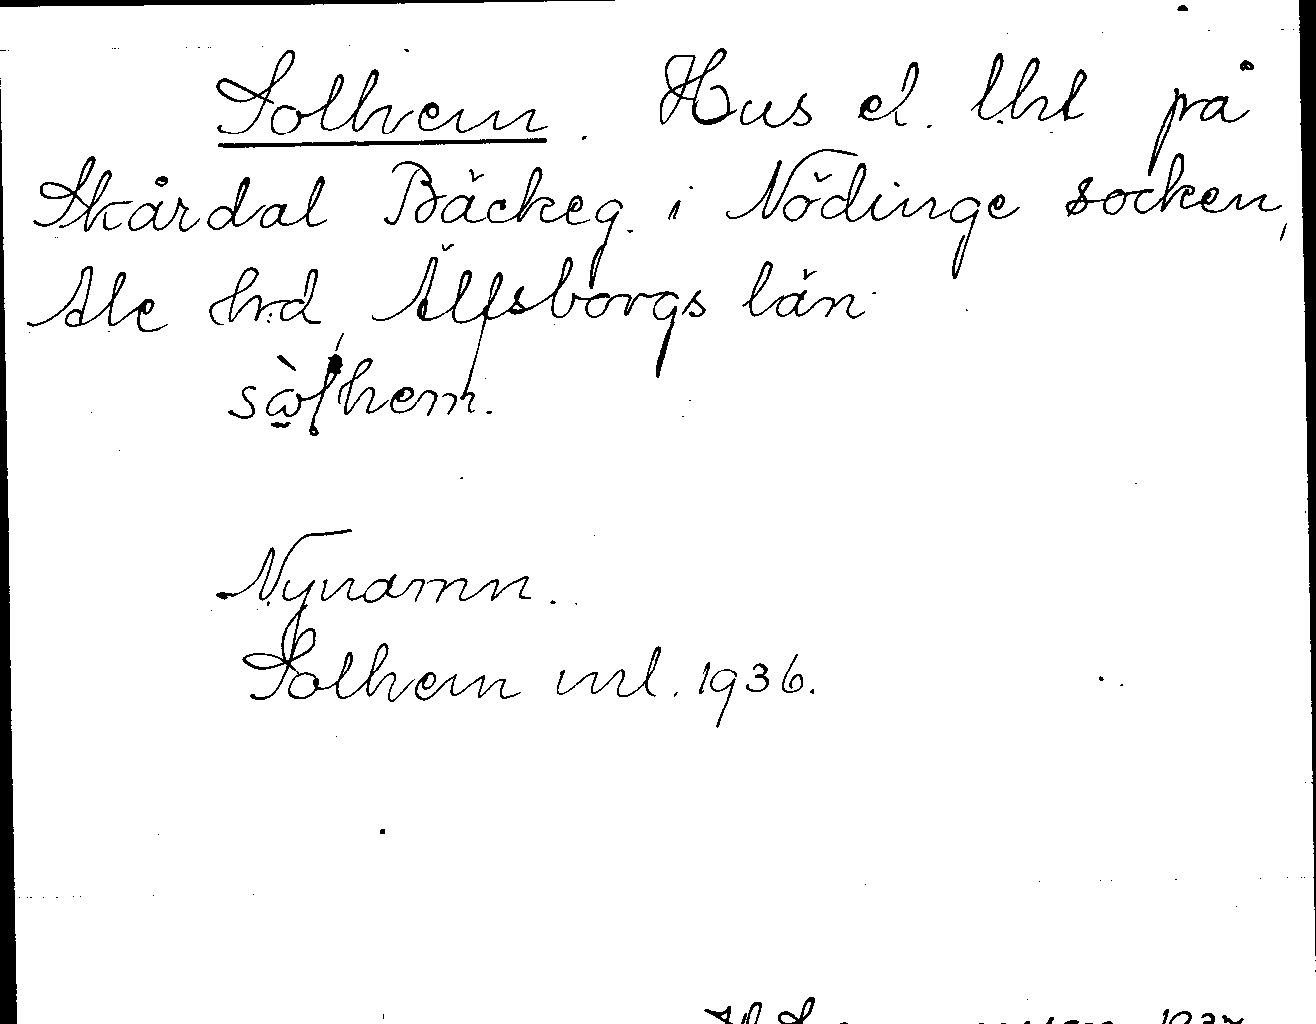 Solhem. Hus el. lht på
Skårdal Bäckeg. i Nödinge socken,
Ale hrd, Älfsborgs län
Nynamn.
Solhem url. 1936.